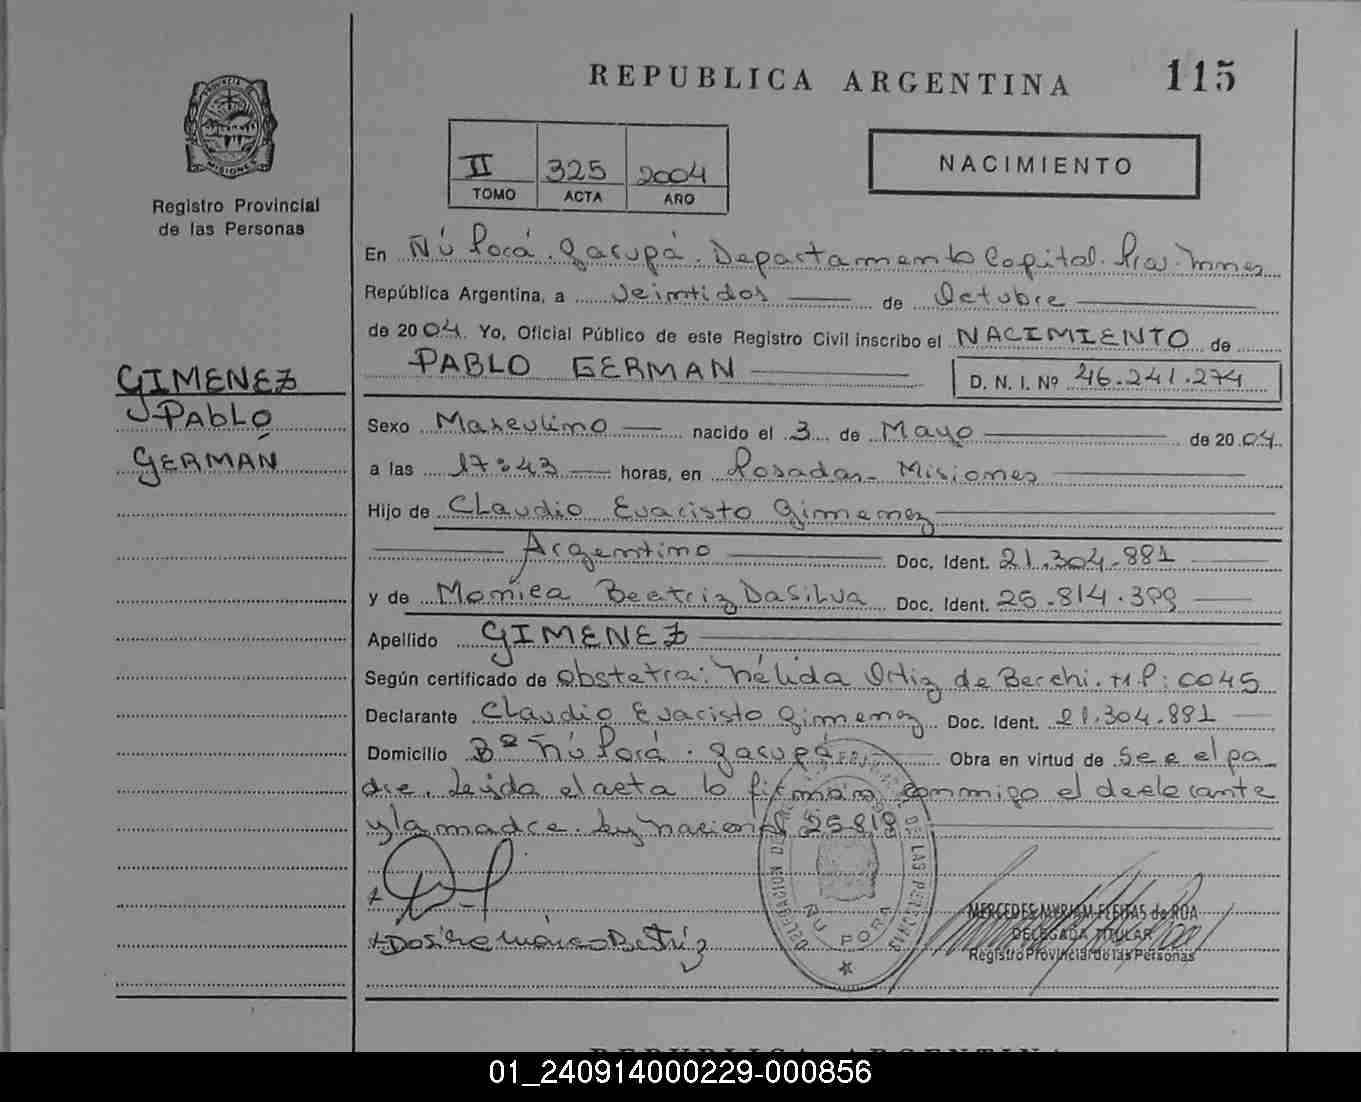 REPUBLICA ARGENTINA
115
PROVINCIA DE
MISIONES
Registro Provincial
de las Personas
II 325 2004
TOMO ACTA AÑO
NACIMIENTO
En Ñú Porá. Garupá. Departamento Capital. Prov. Mnes
República Argentina, a veintidos de Octubre
de 2004. Yo, Oficial Público de este Registro Civil inscribo el NACIMIENTO de
PABLO GERMAN D. N. I. Nº 46.241.274
GIMENEZ
PABLO
GERMÁN
Sexo Masculino nacido el 3 de Mayo de 2004.
a las 17:43 horas, en Posadas - Misiones
Hijo de Claudio Evaristo Gimenez
Argentino Doc. Ident. 21.304.881
y de Mónica Beatriz DaSilva Doc. Ident. 25.814.399
Apellido GIMENEZ
Según certificado de obstetra: Nélida Ortiz de Berchi. M.P: 0045
Declarante Claudio Evaristo Gimenez Doc. Ident. 21.304.881
Domicilio Bº Ñú Porá. Garupá Obra en virtud de ser el pa-
dre. Leida el acta la firman conmigo el declarante
y la madre. Ley Nacional 25819
DELEGACION DE LAS PERSONAS
ÑU PORA
MERCEDES MYRIAM FLEITAS de ROA
DELEGADA TITULAR
Registro Provincial de las Personas
REPUBLICA ARGENTINA
01_240914000229-000856